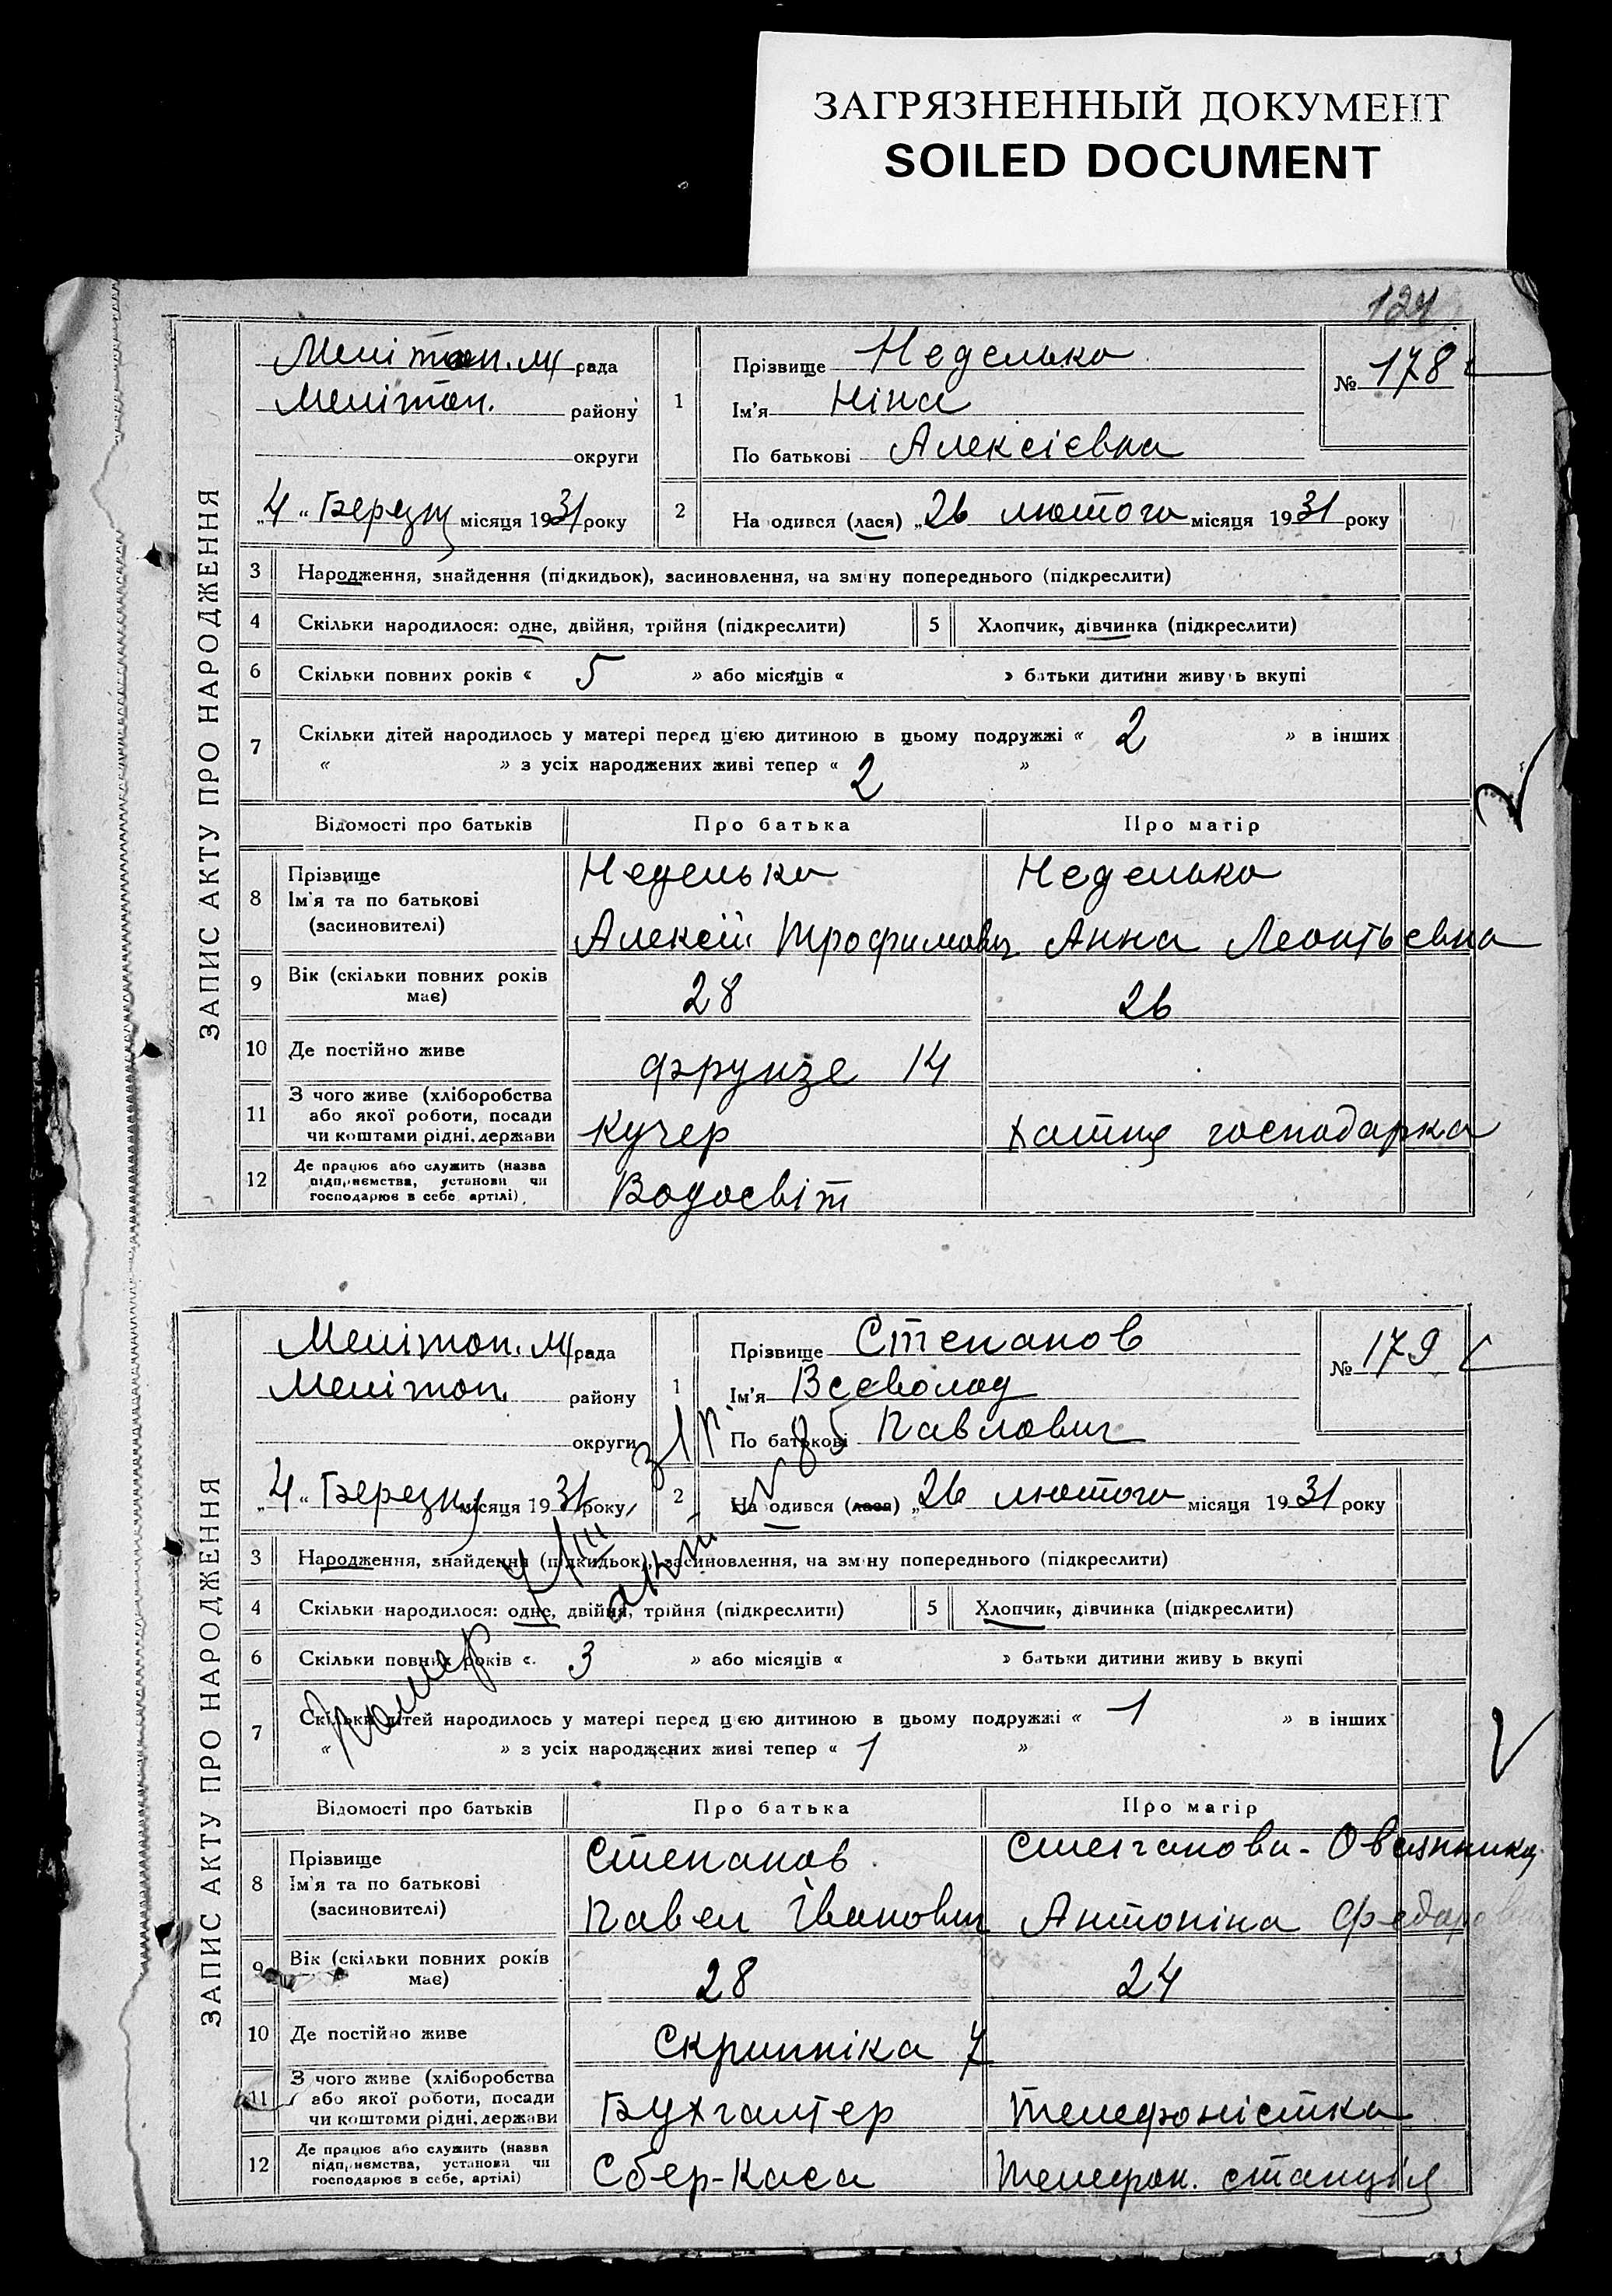 ЗАГРЯЗНЕННЫЙ ДОКУМЕНТ
SOILED DOCUMENT
124
ЗАПИС АКТУ ПРО НАРОДЖЕННЯ
Мелітоп. м/ рада
Мелітоп. району
округи
„4“ Березня місяця 1931 року
1
Прізвище Неделько
Ім'я Ніна
По батькові Алексієвна
№ 178
2
На одився (лася) „26 лютого місяця 1931 року
3 Народження, знайдення (підкидьок), засиновлення, на зм ну попереднього (підкреслити)
4 Скільки народилося: одне, двійня, трійня (підкреслити) 5 Хлопчик, дівчинка (підкреслити)
6 Скільки повних років « 5 » або місяців « » батьки дитини живу ь вкупі
7 Скільки дітей народилось у матері перед цією дитиною в цьому подружжі « 2 » в інших
« » з усіх народжених живі тепер « 2 »
Відомості про батьків Про батька Про матір
8 Прізвище Неделько Неделько
Ім'я та по батькові
(засиновителі) Алексій Трофимович Анна Леонтьевна
9 Вік (скільки повних років має) 28 26
10 Де постійно живе Фрунзе 14
11 З чого живе (хліборобства
або якої роботи, посади
чи коштами рідні, держави Кучер хатня господарка
12 Де працює або служить (назва
підприємства, установи чи
господарює в себе артілі) Водосвіт
ЗАПИС АКТУ ПРО НАРОДЖЕННЯ
Мелітоп. м/ рада
Мелітоп. району
округи
„4“ Березня місяця 1931 року
1
Прізвище Степанов
Ім'я Всеволод
По батькові Павлович
№ 179
2
На одився (лася) „26 лютого місяця 1931 року
Помер 4/III 31 р.
акт № 85
3 Народження, знайдення (підкидьок), засиновлення, на зм ну попереднього (підкреслити)
4 Скільки народилося: одне, двійня, трійня (підкреслити) 5 Хлопчик, дівчинка (підкреслити)
6 Скільки повних років « 3 » або місяців « » батьки дитини живу ь вкупі
7 Скільки дітей народилось у матері перед ц єю дитиною в цьому подружжі « 1 » в інших
« » з усіх народжених живі тепер « 1 »
Відомості про батьків Про батька Про матір
8 Прізвище Степанов Степанова-
Ім'я та по батькові
(засиновителі) Павел Іванович Антоніна Федоров
9 Вік (скільки повних років має) 28 24
10 Де постійно живе Скрипніка 7
11 З чого живе (хліборобства
або якої роботи, посади
чи коштами рідні, держави Бухгалтер телефоністка
12 Де працює або служить (назва
підприємства, установи чи
господарює в себе, артілі) Сбер-Каса Телефон. станція